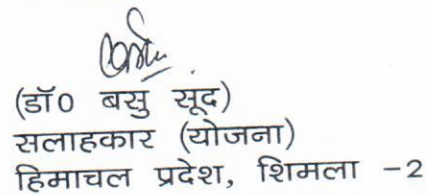 (डॉ0 बसु सूद)
सलाहकार (योजना)
हिमाचल प्रदेश, शिमला -2